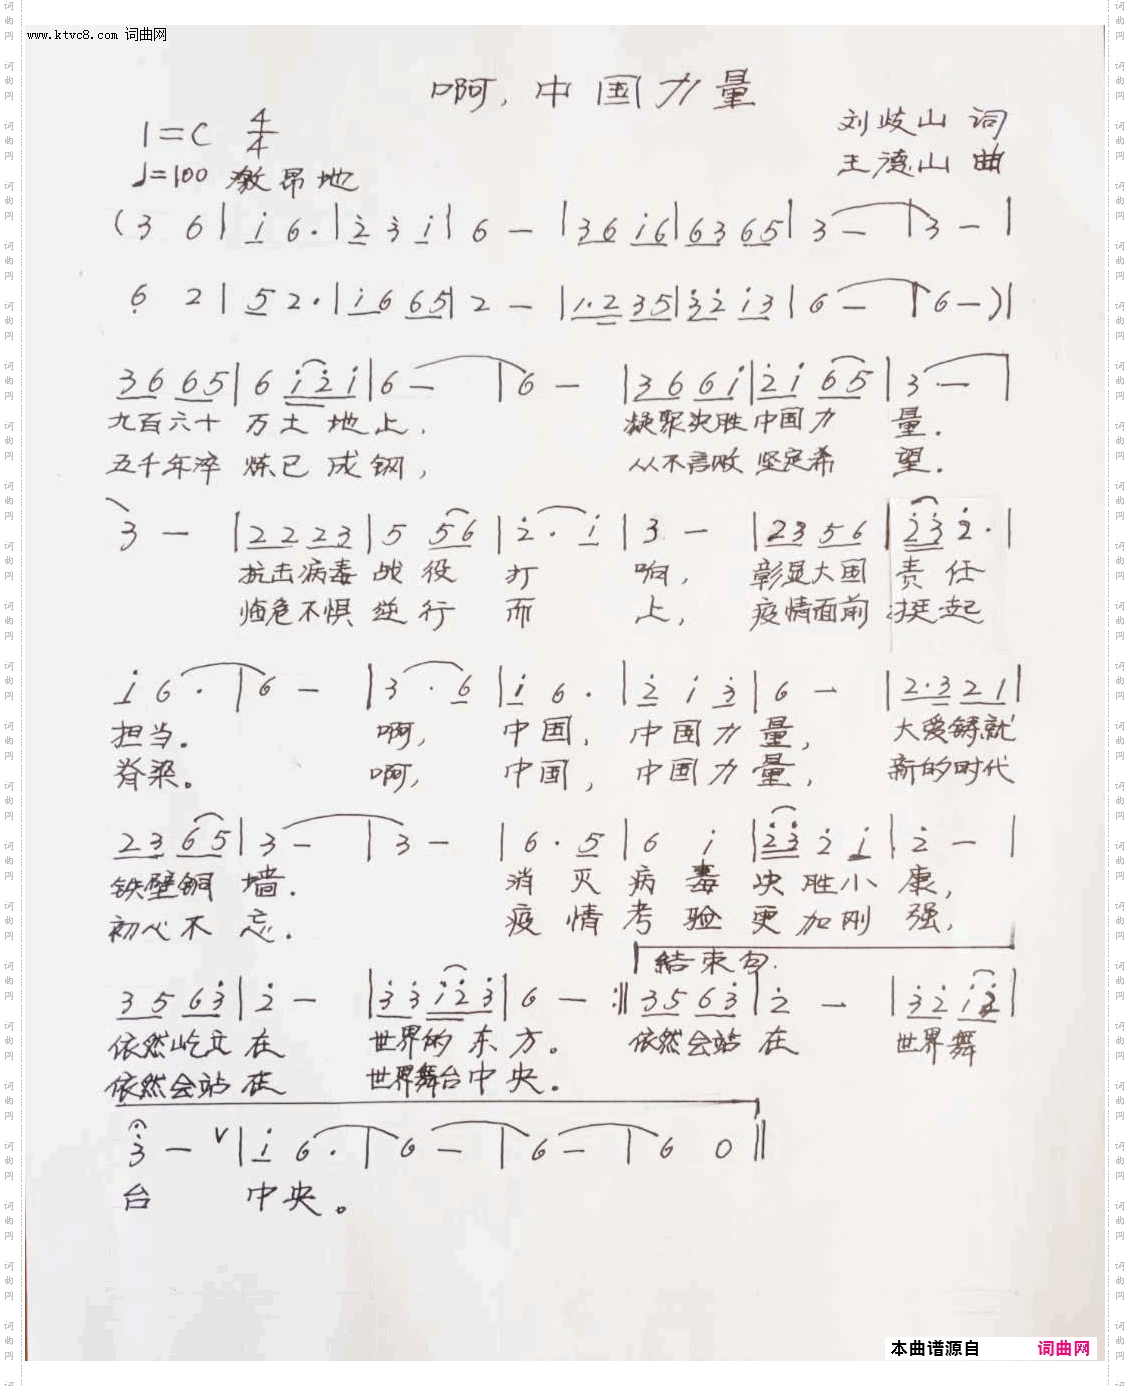 www.ktvc8.com 词曲网
啊,中国力量
1=C 4/4
刘歧山 词
♩=100 激昂地
王德山 曲
(3 6 | i 6· | 2 3 i | 6 — | 36 i6 | 63 65 | 3 — | 3 — |
6 2 | 5 2· | i6 65 | 2 — | 1·2 35 | 32 i3 | 6 — | 6 —) |
36 65 | 6 i2i | 6 — | 6 — | 36 6i | 2i 65 | 3 — |
九百六十 万土地上, 凝聚决胜中国力 量.
五千年淬 炼已成钢, 从不言败 坚定希 望.
3 — | 22 23 | 5 56 | 2· i | 3 — | 23 56 | 23 2· |
抗击病毒 战役 打 响, 彰显大国 责任
临危不惧 逆行 而 上, 疫情面前 挺起
i 6· | 6 — | 3· 6 | i 6· | 2 i 3 | 6 — | 2·3 21 |
担当. 啊, 中国, 中国力量, 大爱铸就
脊梁。 啊, 中国, 中国力量, 新的时代
23 65 | 3 — | 3 — | 6· 5 | 6 i | 23 2 i | 2 — |
铁壁铜 墙. 消灭病毒 决胜小康,
初心不忘. 疫情考验 更加刚强,
結束句.
35 63 | 2 — | 33 i23 | 6 — :‖ 35 63 | 2 — | 32 i2 |
依然屹立在 世界的东方。 依然会站在 世界舞
依然会站在 世界舞台中央.
3 — V | i 6· | 6 — | 6 — | 6 0 ‖
台 中央。
本曲谱源自 词曲网